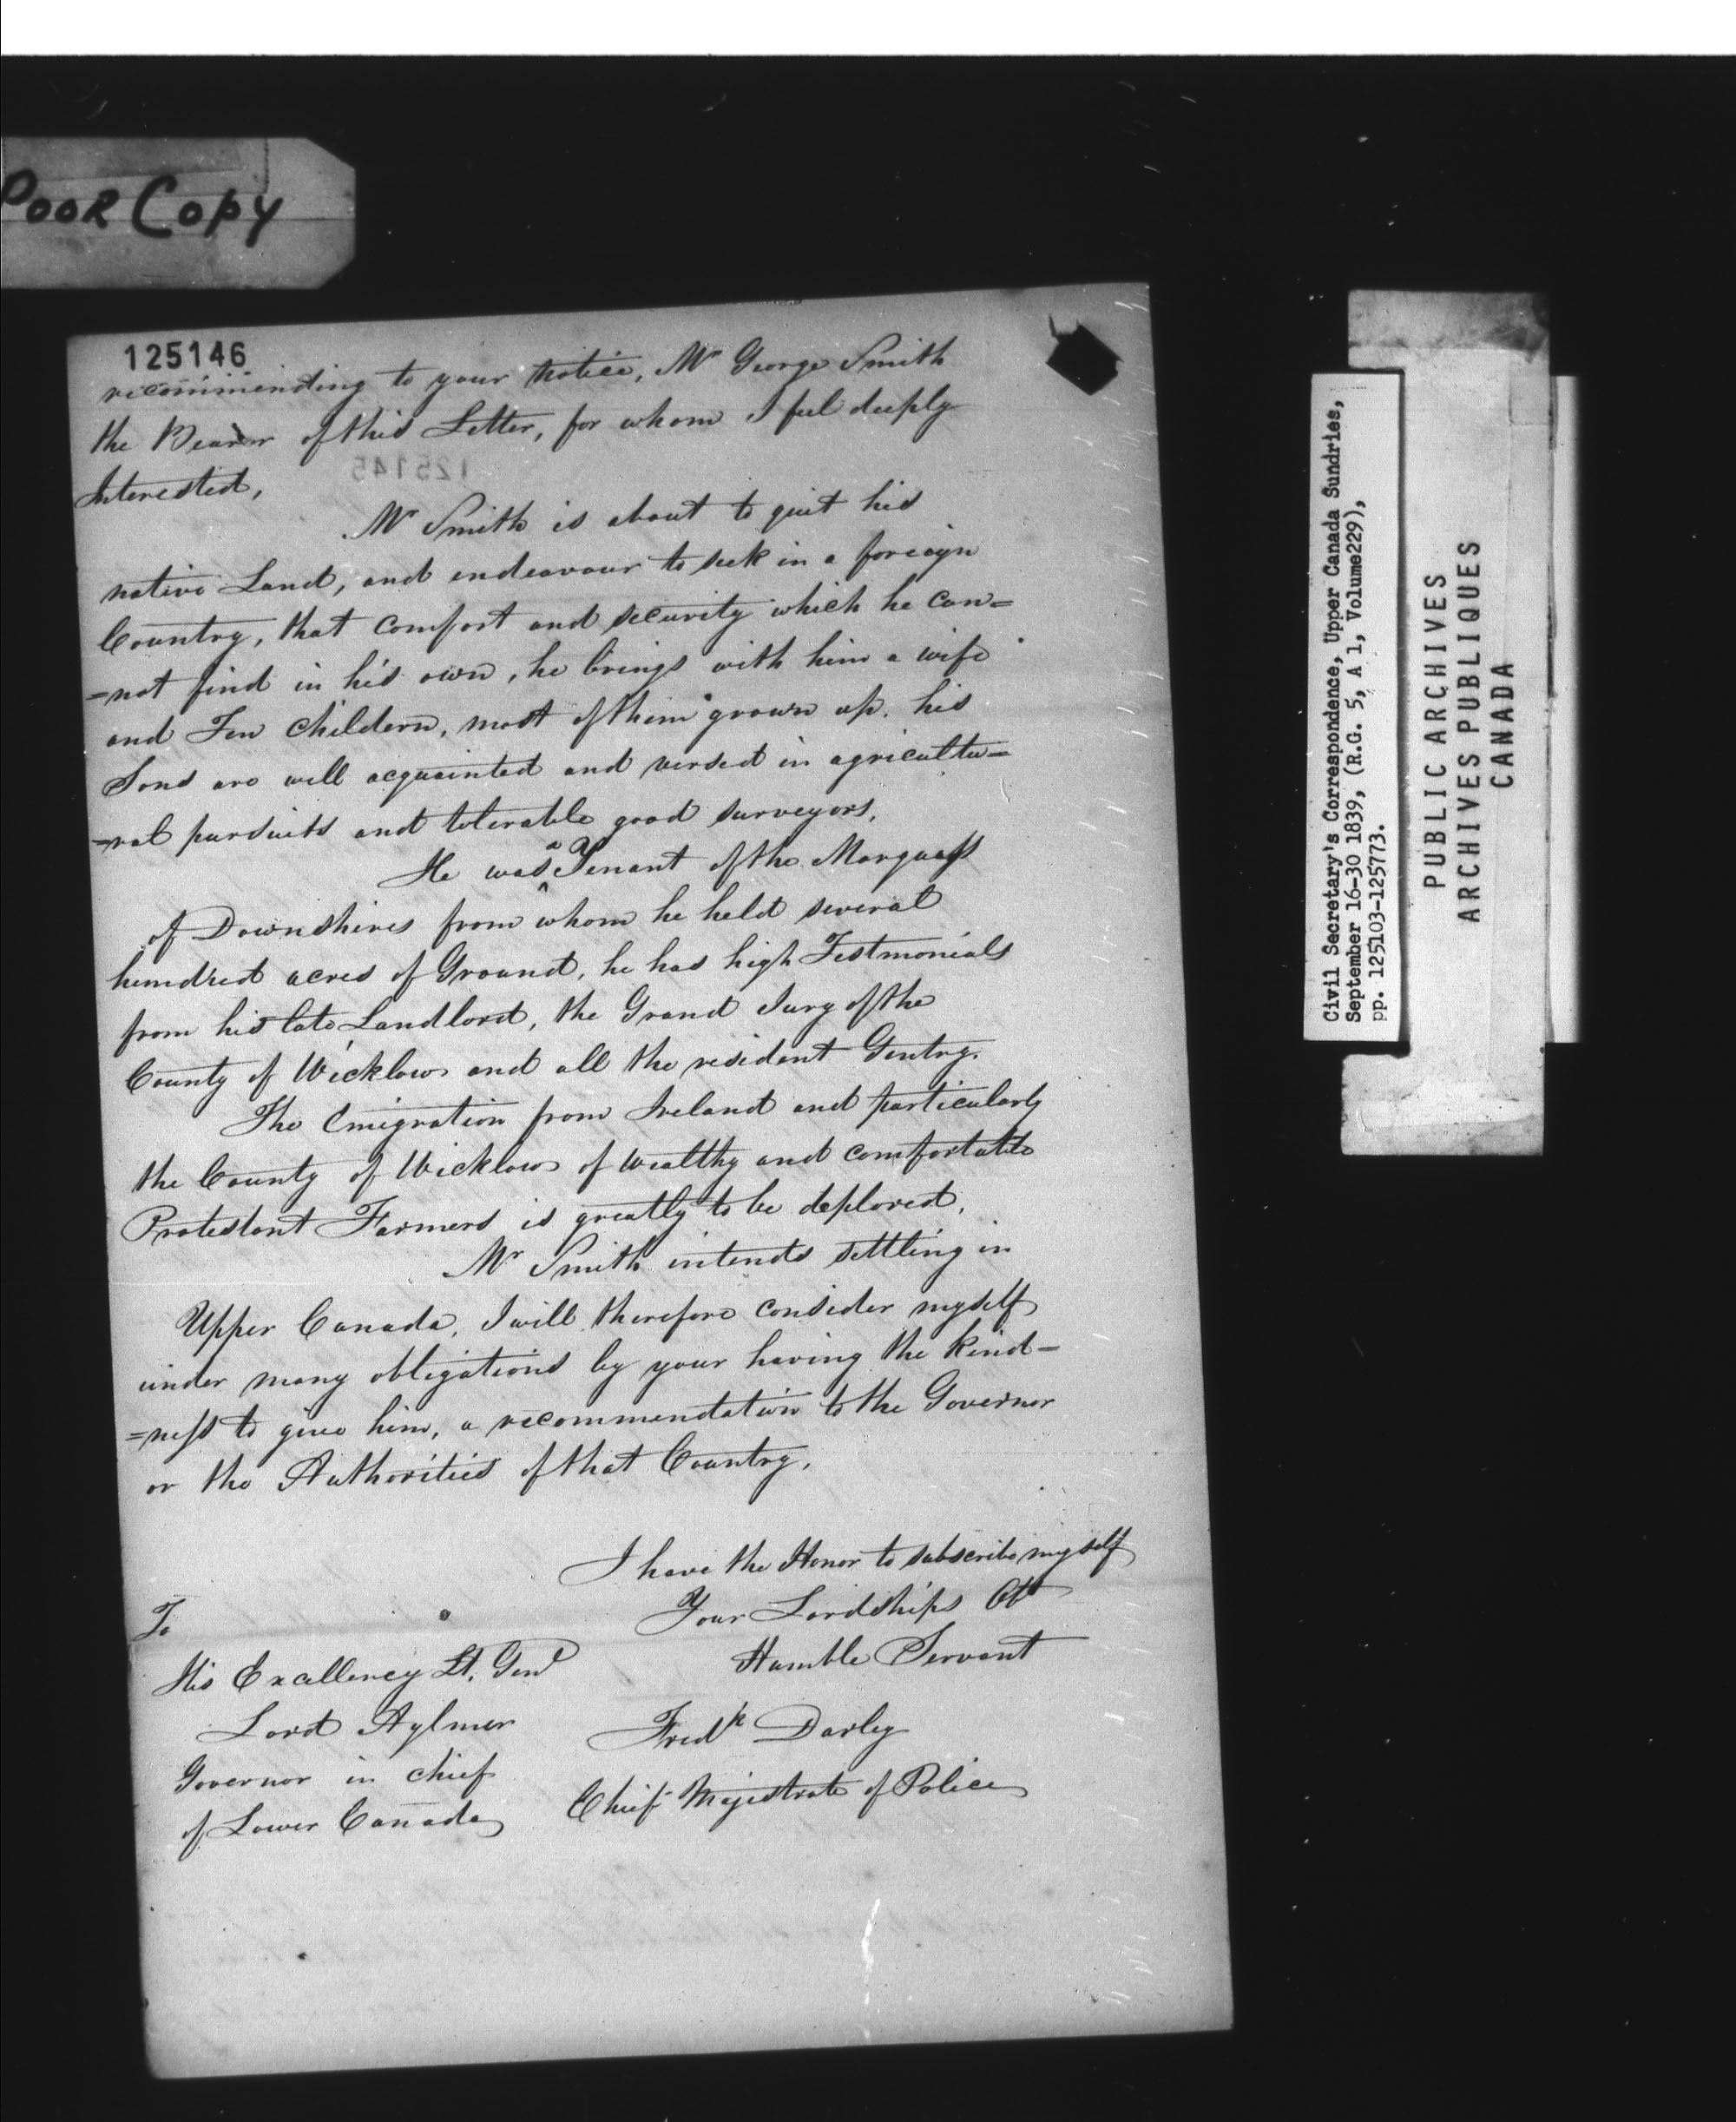 Poor Copy
125146
recommending to your Notice, Mr George Smith
the Bearer of this Letter, for whom I feel deeply
Interested,
125145
Mr Smith is about to quit his
native Land, and endeavour to seek in a foreign
Country, that comfort and security which he can=
=not find in his own, he brings with him a wife
and Ten Childern, most of them grown up. his
Sons are well acquainted and versed in agricultu=
=ral pursuits and tolerable good surveyors,
He was a Tenant of the Marquess
of Downshires from whom he held several
hundred acres of Ground, he has high Testmonials
from his late Landlord, the Grand Jury of the
County of Wicklow and all the resident Gentry.
The Emigration from Ireland and particularly
the County of Wicklow of Wealthy and comfortable
Protestant Farmers is greatly to be deplored.
Mr Smith intends settling in
Upper Canada, I will therefore consider myself
under many obligations by your having the kind=
=ness to give him, a recommendation to the Governor
or the Authorities of that Country.
I have the Honor to subscribe myself
Your Lordships Obt
Humble Servant
Fredk Darley
Chief Majestrate of Police
To
His Excellency Lt. Genl
Lord Aylmer
Governor in chief
of Lower Canada
Civil Secretary's Correspondence, Upper Canada Sundries,
September 16-30 1839, (R.G. 5, A 1, Volume229),
pp. 125103-125773.
PUBLIC ARCHIVES
ARCHIVES PUBLIQUES
CANADA